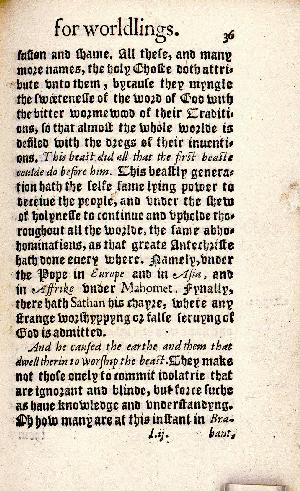 for worldlings. 36
fusion and shame. All these, and many
more names, the holy Ghoste doth attri-
bute vnto them, bycause they myngle
the sweetenesse of the word of God with
the bitter wormewod of their Traditi-
ons, so that almost the whole worlde is
defiled with the dregs of their inuenti-
ons. This beast did all that the first beaste
coulde do before him. This beastly genera-
tion hath the selfe same lying power to
deceiue the people, and vnder the shew
of holynesse to continue and vpholde tho-
roughout all the worlde, the same abho-
hominations, as that greate Antechriste
hath done euery where. Namely, vnder
the Pope in Europe and in Asia, and
in Affrike vnder Mahomet. Fynally,
there hath Sathan his chayre, where any
strange worshyppyng or false seruyng of
God is admitted.
And he caused the earthe and them that
dwell therin to worship the beast. They make
not those onely to commit idolatrie that
are ignorant and blinde, but force suche
as haue knowledge and vnderstandyng.
Oh how many are at this instant in Bra-
L.ij. bant,